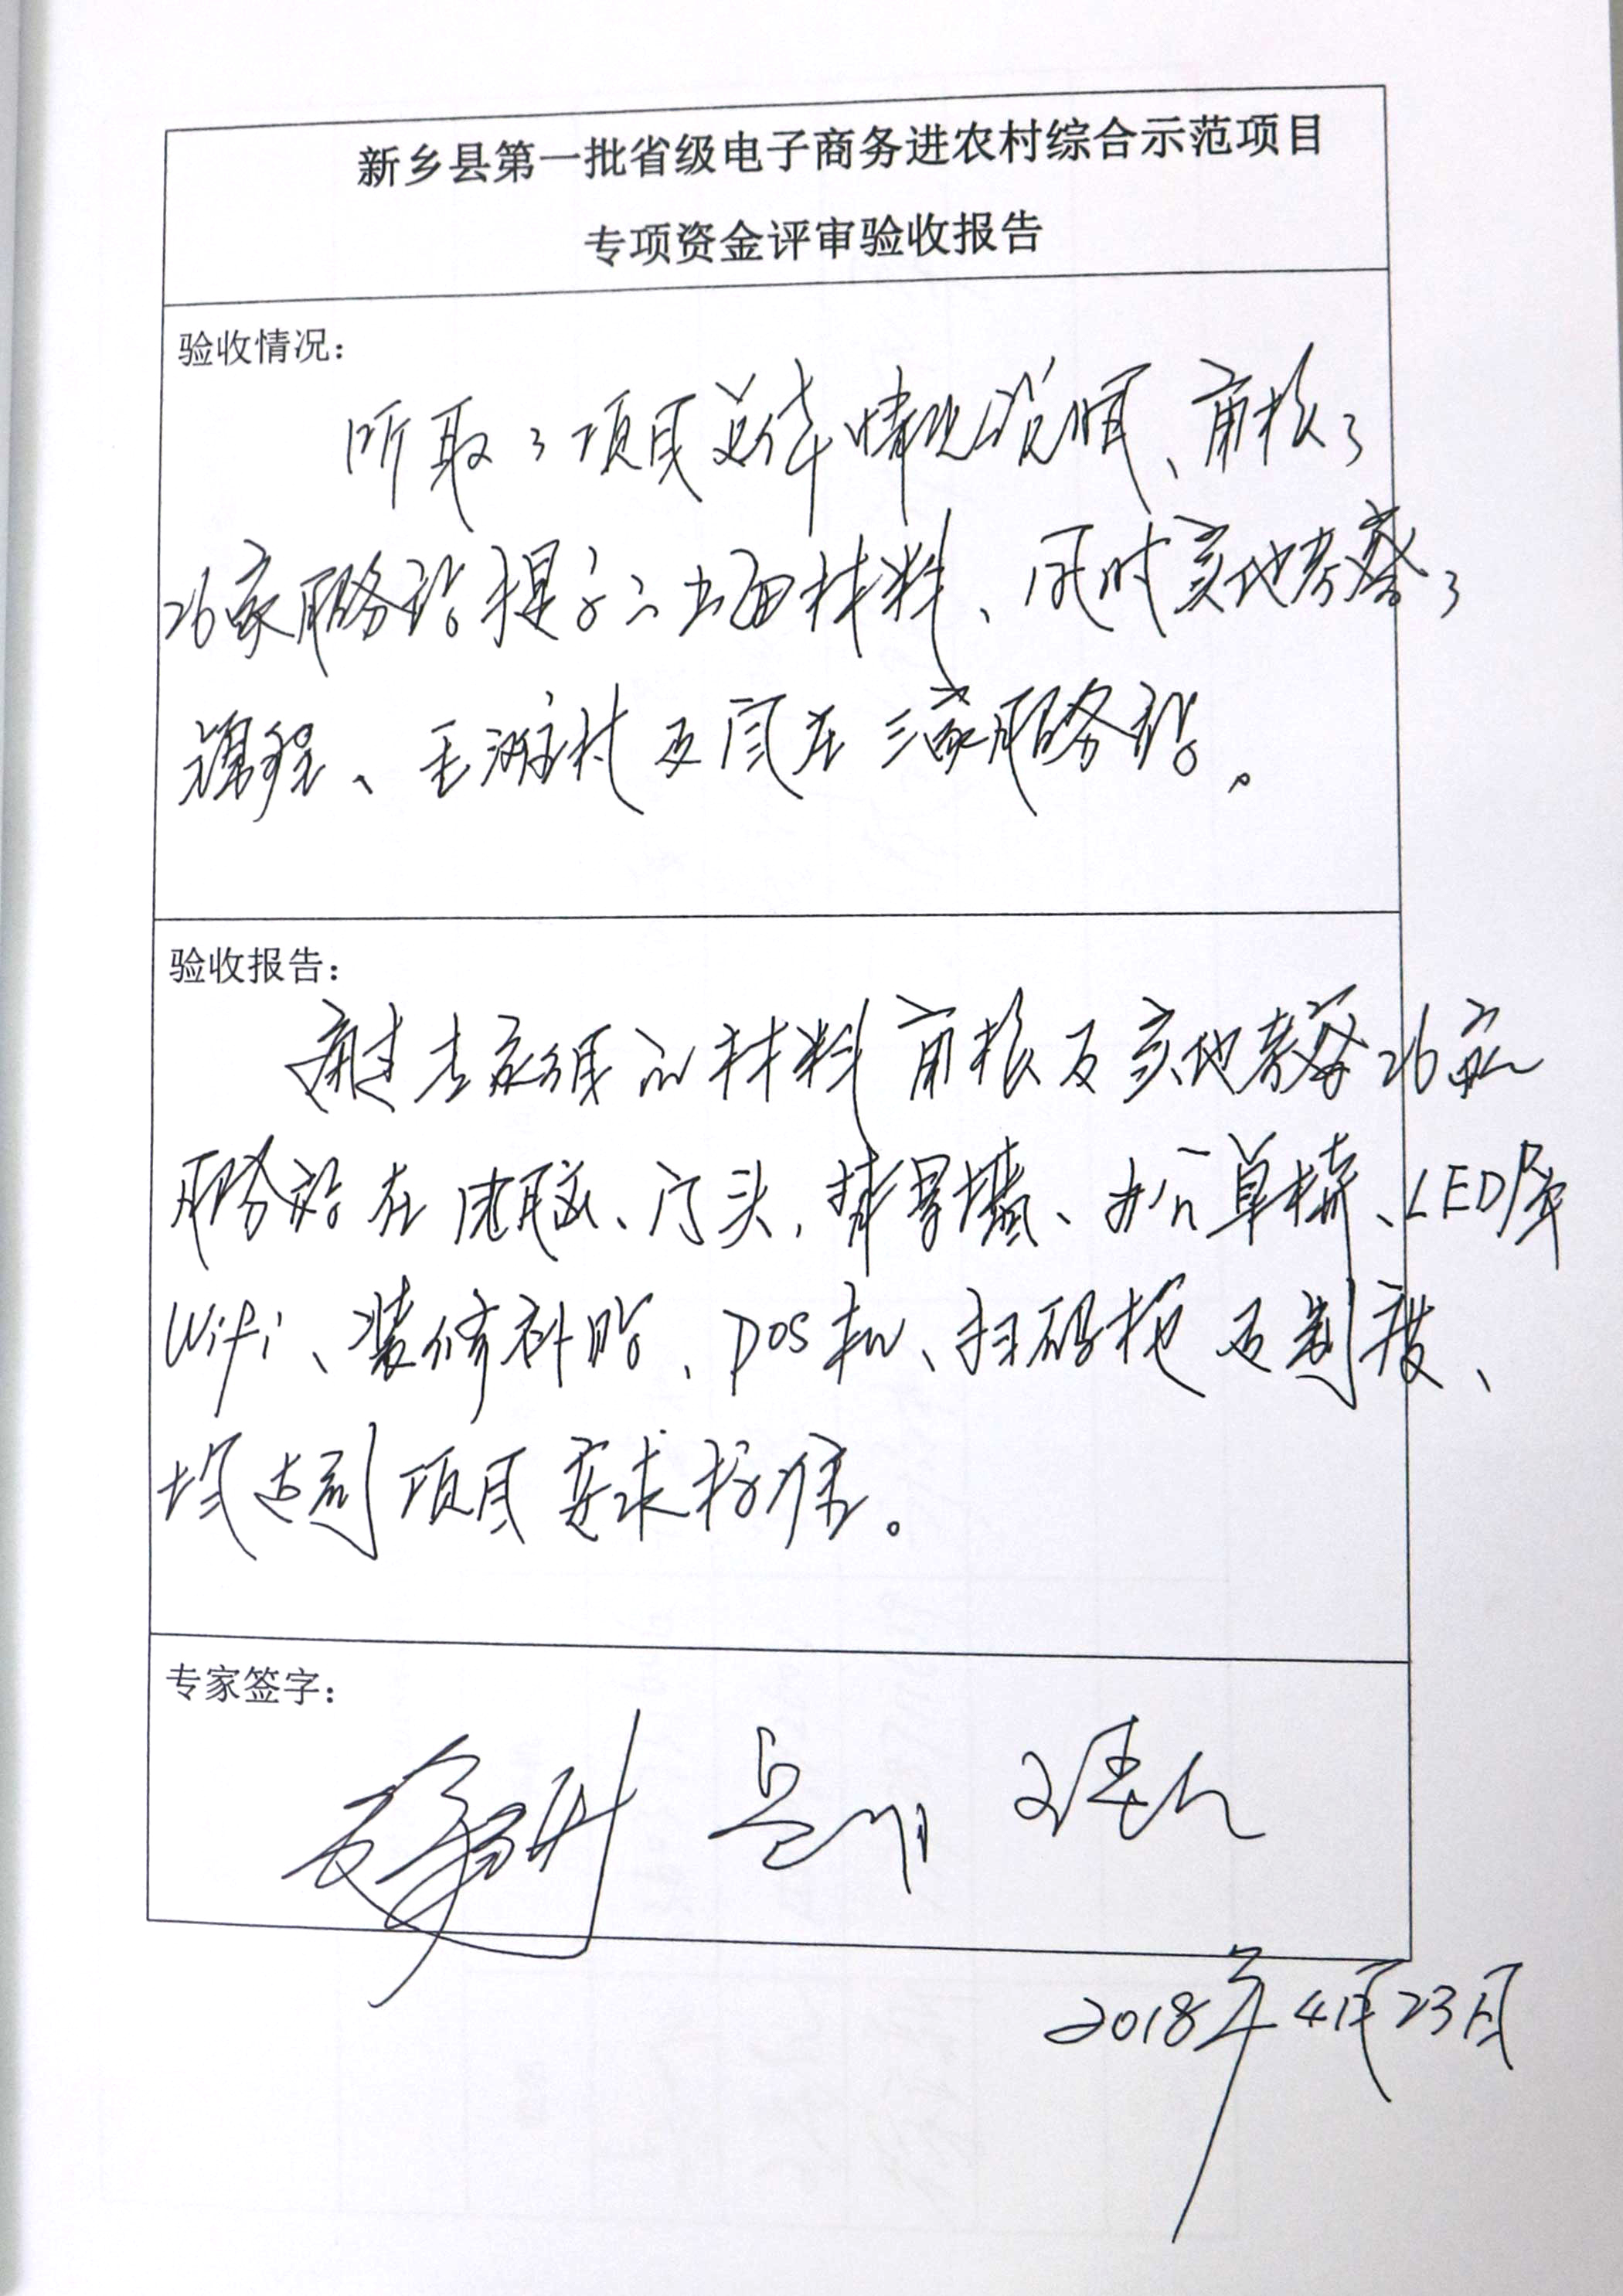 新乡县第一批省级电子商务进农村综合示范项目
专项资金评审验收报告
验收情况：
听取了项目总体情况说明、审核了
26家服务站提交的书面材料、同时实地考察了
锦程、毛滩村及闫庄三家服务站。
验收报告：
通过专家组的材料审核及实地考察26家
服务站在电脑、门头、背景墙、办公桌椅、LED屏
Wifi、装修补贴、POS机、扫码枪及制度、
均达到项目要求标准。
专家签字：
2018年4月23日